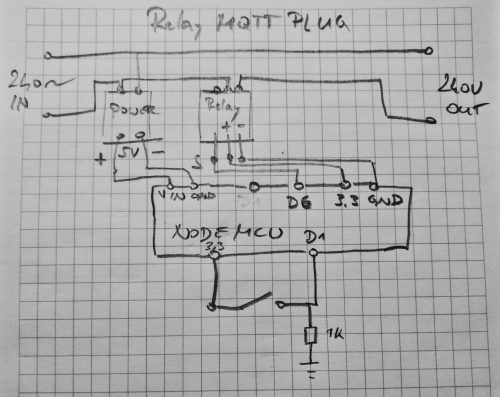 Relay MQTT PLUG
240~
IN
240V
OUT
POWER
Relay
+ -
+ 5V -
S
VIN GND D6 3,3 GND
NODE MCU
3,3 D1
1K